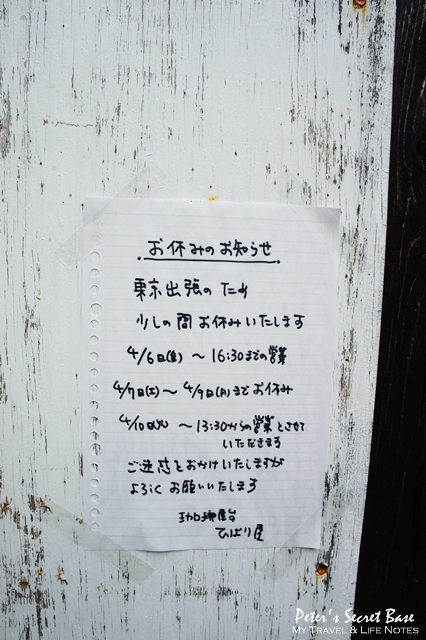 お休みのお知らせ
東京出張のため
少しの間お休みいたします
4/6日(金) ～ 16:30までの営業
4/7日(土) ～ 4/9日(月)までお休み
4/10日(火) ～ 13:30からの営業とさせて
いただきます
ご迷惑をおかけいたしますが
よろしくお願いいたします
珈琲屋台
ひばり屋
Peter's Secret Base
My Travel & Life Notes